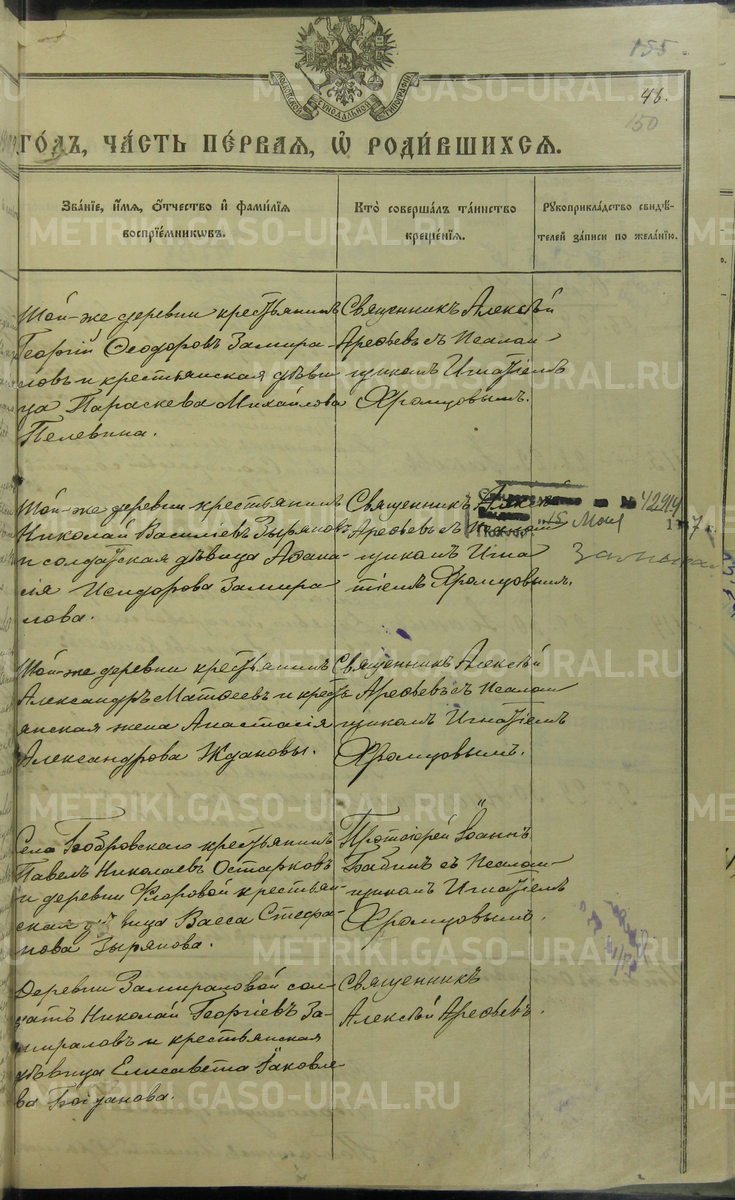 155.
48.
150
МОСКОВСКОЙ СѴНОДАЛЬНОЙ ТИПОГРАФІИ
ГО́ДЪ, ЧА́СТЬ ПЕ́РВАЯ, Ѿ РОДИ́ВШИХСѦ.
Зва́ніе, и҆́мѧ, ѻ҆́тчество и҆ фами́лїѧ
воспрїе́мникѡвъ.
Кто̀ соверша́лъ та́инство
креще́нїѧ.
Рꙋкоприкла́дство свидѣ́-
телей за́писи по жела́нїю.
Той-же деревни крестьянинъ
Георгій Ѳеодоровъ Замира-
ловъ и крестьянская дѣви-
ца Параскева Михайлова
Пелевина.
Священникъ Алексѣй
Арефьевъ съ Псалом-
щикомъ Игнатіемъ
Хромцовымъ.
Той-же деревни крестьянинъ
Николай Василіевъ Зыряновъ
и солдатская дѣвица Афана-
сія Исидорова Замира
лова.
Священникъ Алексѣй
Арефьевъ съ Псалом
щикомъ Игна
тіемъ Хромцовымъ.
№ 42914
15 Мая 1 7 г.
Той-же деревни крестьянинъ
Александръ Матѳеевъ и крест
янская жена Анастасія
Александрова Ждановы.
Священникъ Алексѣй
Арефьевъ съ Псалом
щикомъ Игнатіемъ
Хромцовымъ.
Села Бобровскаго крестьянинъ
Павелъ Николаевъ Остарковъ
и деревни Фларовой крестьян-
ская дѣвица Васса Стефа-
нова Зырянова.
Протоіерей Іоаннъ
Бабинъ съ Псалом-
щикомъ Игнатіемъ
Хромцовымъ.
Деревни Замираловой сол-
датъ Николай Георгіевъ За-
мираловъ и крестьянская
дѣвица Елисавета Іаковле-
ва Богданова.
Священникъ
Алексѣй Арефьевъ.
METRIKI.GASO-URAL.RU